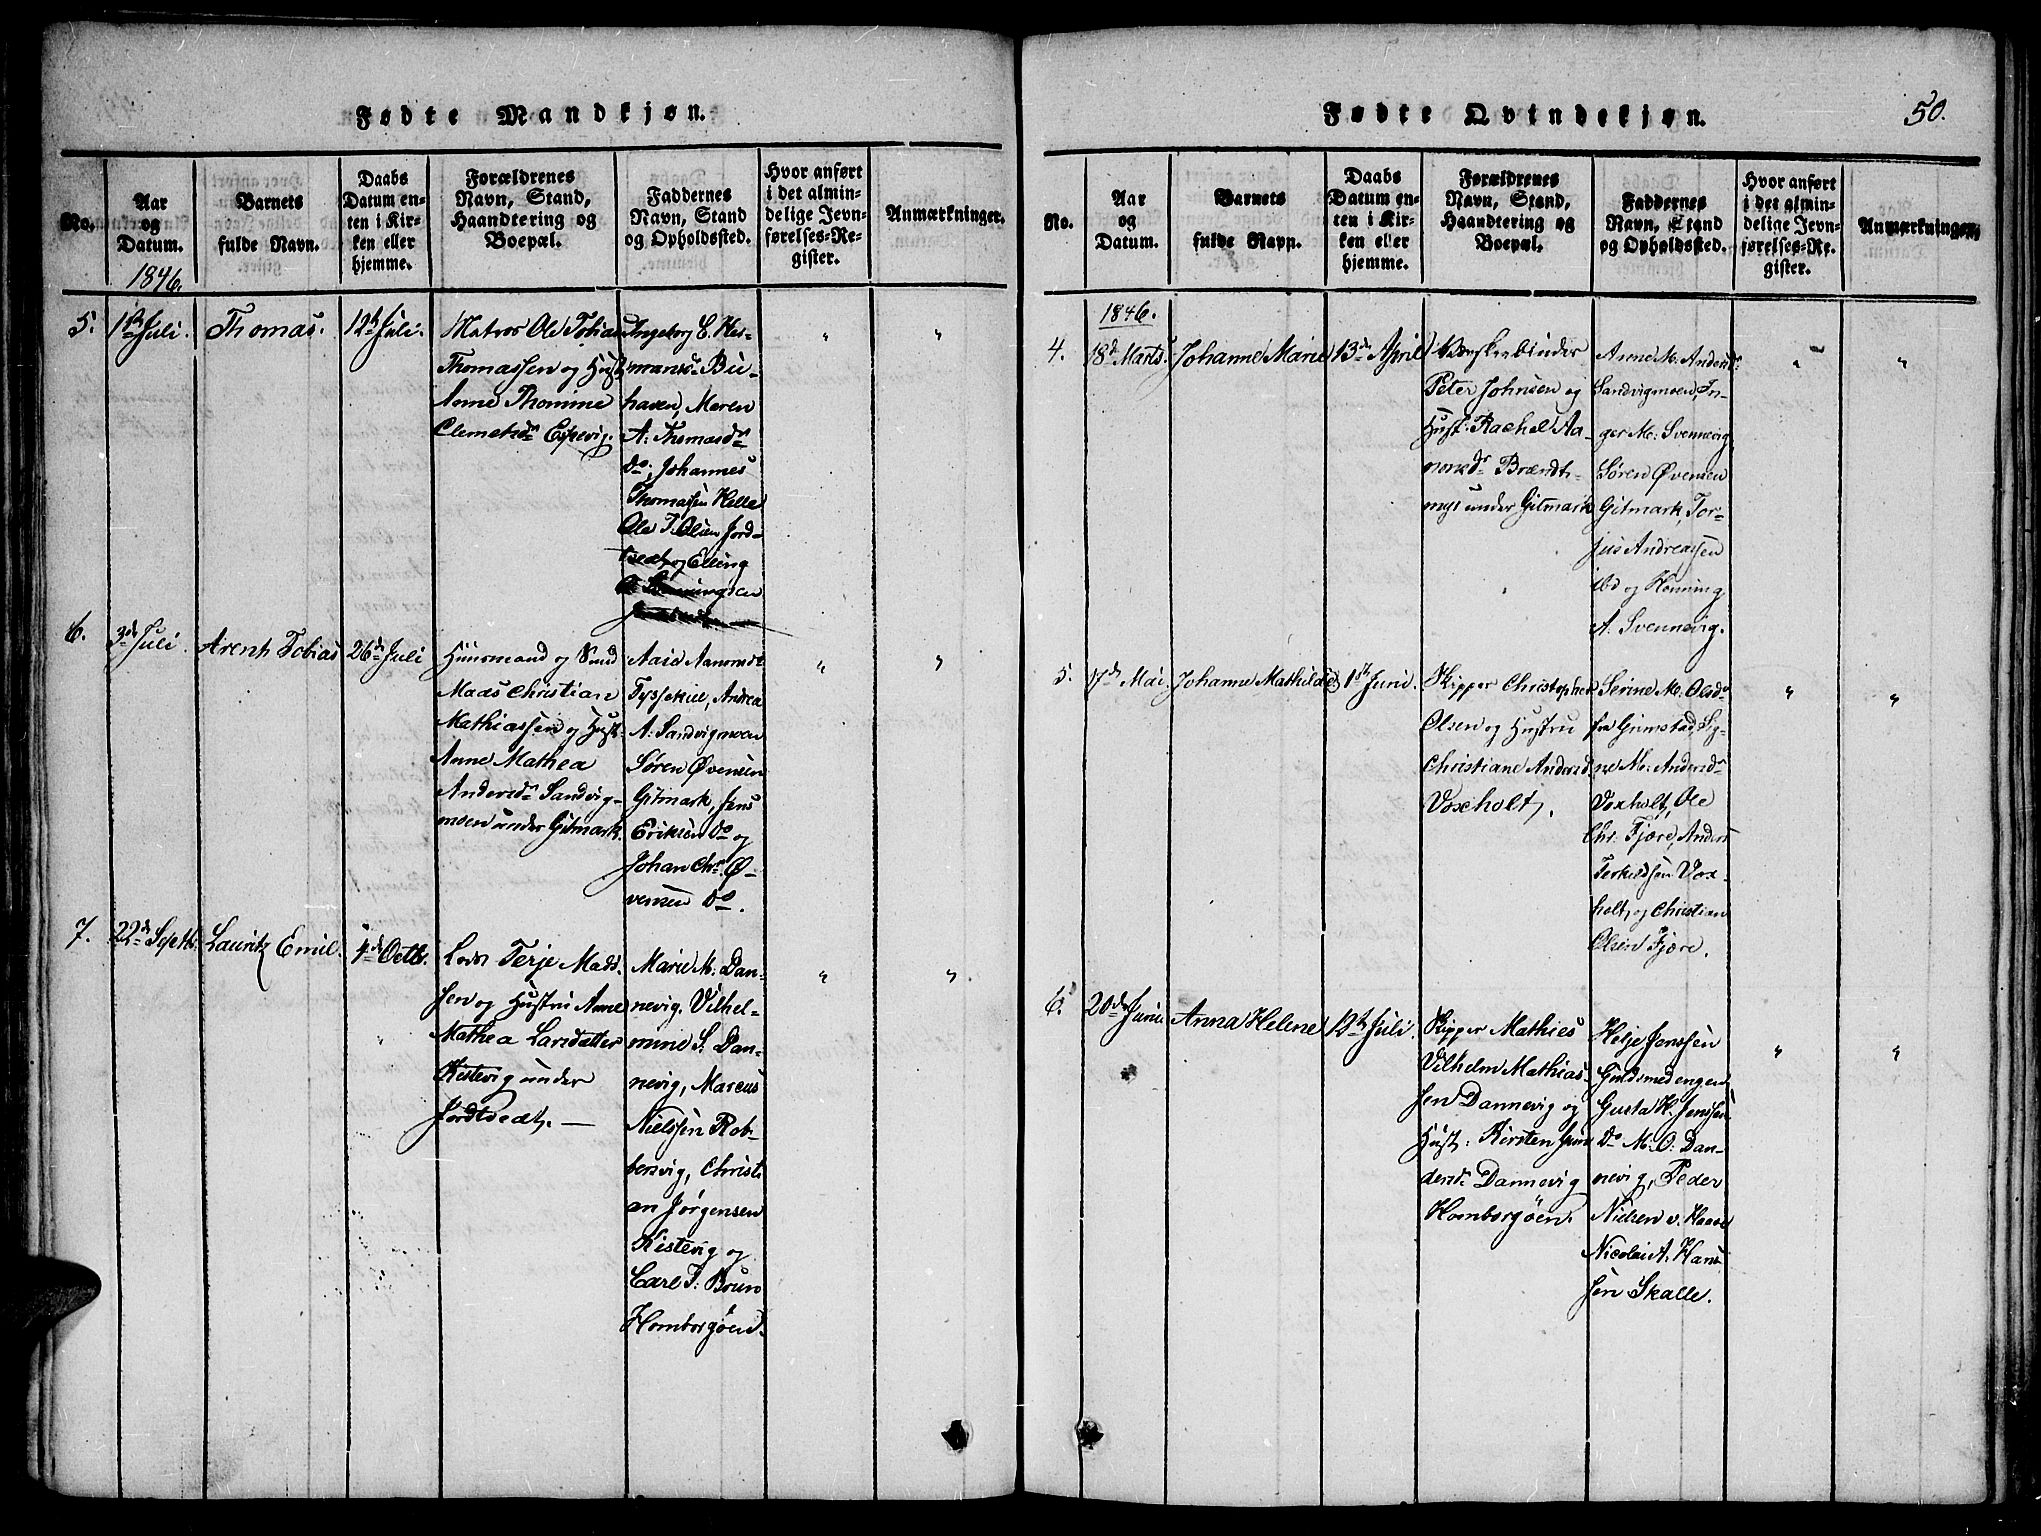 Fødte Mandkjøn.
No.
Aar
og
Datum.
1846.
Barnets
fulde Navn.
Daabs
Datum en-
ten i Kir-
ken eller
hjemme.
Forældrenes
Navn, Stand,
Haandtering og
Boepæl.
Faddernes
Navn, Stand
og Opholdssted.
Hvor anført
i det almin-
delige Jevn-
førelses-Re-
gister.
Anmærkninger.
5.
1ste Juli.
Thomas.
12te Juli.
Matros Ole Tobias
Thomassen og Hust.
Anne Thomine
Clemetsdr Espevig.
Ingeborg E. Her-
mansd.
haven, Maren
A. Thomasdr
do, Johannes
Thomassen Helle
Ole T. Olsen Jord-
tvedt og Elling
"
"
6.
3die Juli
Arent Tobias
26de Juli
Huusmand og Smed
Mads Christian
Mathiassen og Hust.
Anne Mathea
Andersdr Sandvig-
moen under Gitmark.
Aase Aanonsdr
Tyssekiil, Andrea
A. Sandvigmoen
Søren Øvensen
Gitmark, Jens
Eriksen do og
Johan Chr. Ø-
vensen do.
"
"
7.
22de Septb.
Lauritz Emil.
4de Octb.
Lods Terje Mads-
sen og Hustru Anne
Mathea Larsdatter
Kistevig under
Jordtvedt. —
Marie M. Dan-
nevig. Vilhel-
mine S. Dan-
nevig, Marcus
Nielssen Rob-
bersvig, Christi-
an Jørgensen
Kistevig og
Carl T. Bruun
Homborgøen.
"
"
Fødte Qvindekjøn.
50.
No.
Aar
og
Datum.
Barnets
fulde Navn.
Daabs
Datum en-
ten i Kir-
ken eller
hjemme.
Forældrenes
Navn, Stand,
Haandtering og
Boepæl.
Faddernes
Navn, Stand
og Opholdssted.
Hvor anført
i det almin-
delige Jevn-
førelses-Re-
gister.
Anmærkninger.
1846.
4.
18de Marts.
Johanne Marie
13de April
Peter Johnsen og
Hust. Rachel Aa-
nonsdr Brændt-
under Gitmark
Anne M. Andersdr
Sandvigmoen, In-
ger M. Svennevig
Søren Øvensen
Gitmark, Tor-
jus Andreassen
ibd og Henning
A. Svennevig.
"
"
5.
17de Mai.
Johanne Mathilde
1ste Juni.
Skipper Christopher
Olsen og Hustru
Christiane Andersd
Voxholt.
Serine M. Olsdr
fra Grimstad, Sig-
ne M. Andersdr
Voxholt, Ole
Chr. Fjære, Anders
Terkildsen Vox-
holt, og Christian
Olsen Fjære.
"
"
6.
20de Juni
Anna Helene
12te Juli.
Skipper Mathies
Vilhelm Mathias-
sen Dannevig og
Hust. Kirsten Gun-
dersdr Dannevig
Homborgøen.
Helje Jenssen
Guldsmedengen
Gusta H. Jenssen
Do M. O. Dan-
nevig, Peder
Nielsen v. Haave
Nicolai A. Hans-
sen Skalle.
"
"